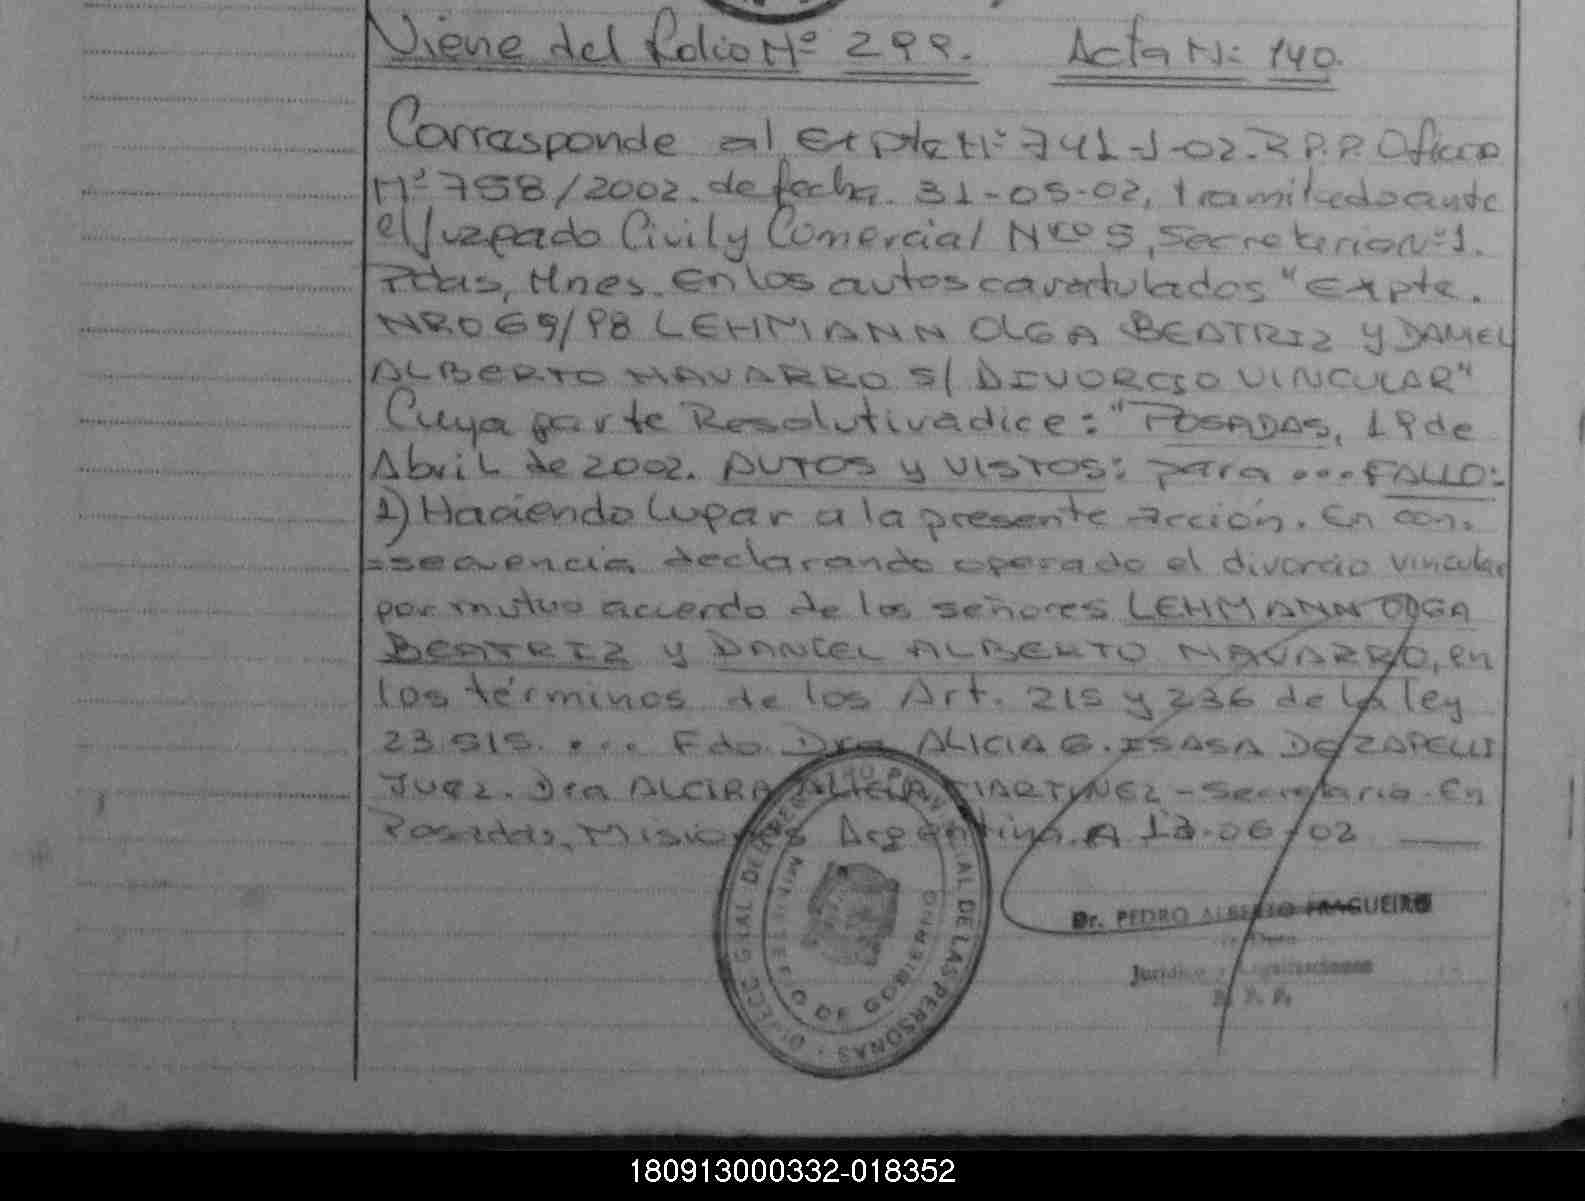 Viene del Folio Nº 299. Acta Nº 140.
Corresponde al Expte Nº 741-J-02. R.P.P. Oficio
Nº 758/2002. de fecha. 31-05-02, tramitado ante
el Juzgado Civil y Comercial Nro 5, Secretaria nº 1.
Pdas, Mnes. En los autos caratulados "Expte.
NRO 69/98 LEHMANN OLGA BEATRIZ y DANIEL
ALBERTO NAVARRO S/ DIVORCIO VINCULAR"
Cuya parte Resolutiva dice: "POSADAS, 19 de
Abril de 2002. AUTOS y VISTOS: para ... FALLO:
1) Haciendo lugar a la presente acción. En con.
=secuencia declarando operado el divorcio vincular
por mutuo acuerdo de los señores LEHMANN OLGA
BEATRIZ y DANIEL ALBERTO NAVARRO, en
los términos de los Art. 215 y 236 de la ley
23.515. ... Fdo. Dra ALICIA G. ISASA DE ZAPELLI
JUEZ. Dra ALCIRA ALICIA MARTINEZ - Secretaria. En
Posadas, Misiones Argentina. A 12-06-02
DIRECC. GRAL. DEL REGISTRO PROVINCIAL DE LAS PERSONAS
MINISTERIO DE GOBIERNO
Dr. PEDRO ALBERTO FRAGUEIRO
R. P. P.
180913000332-018352